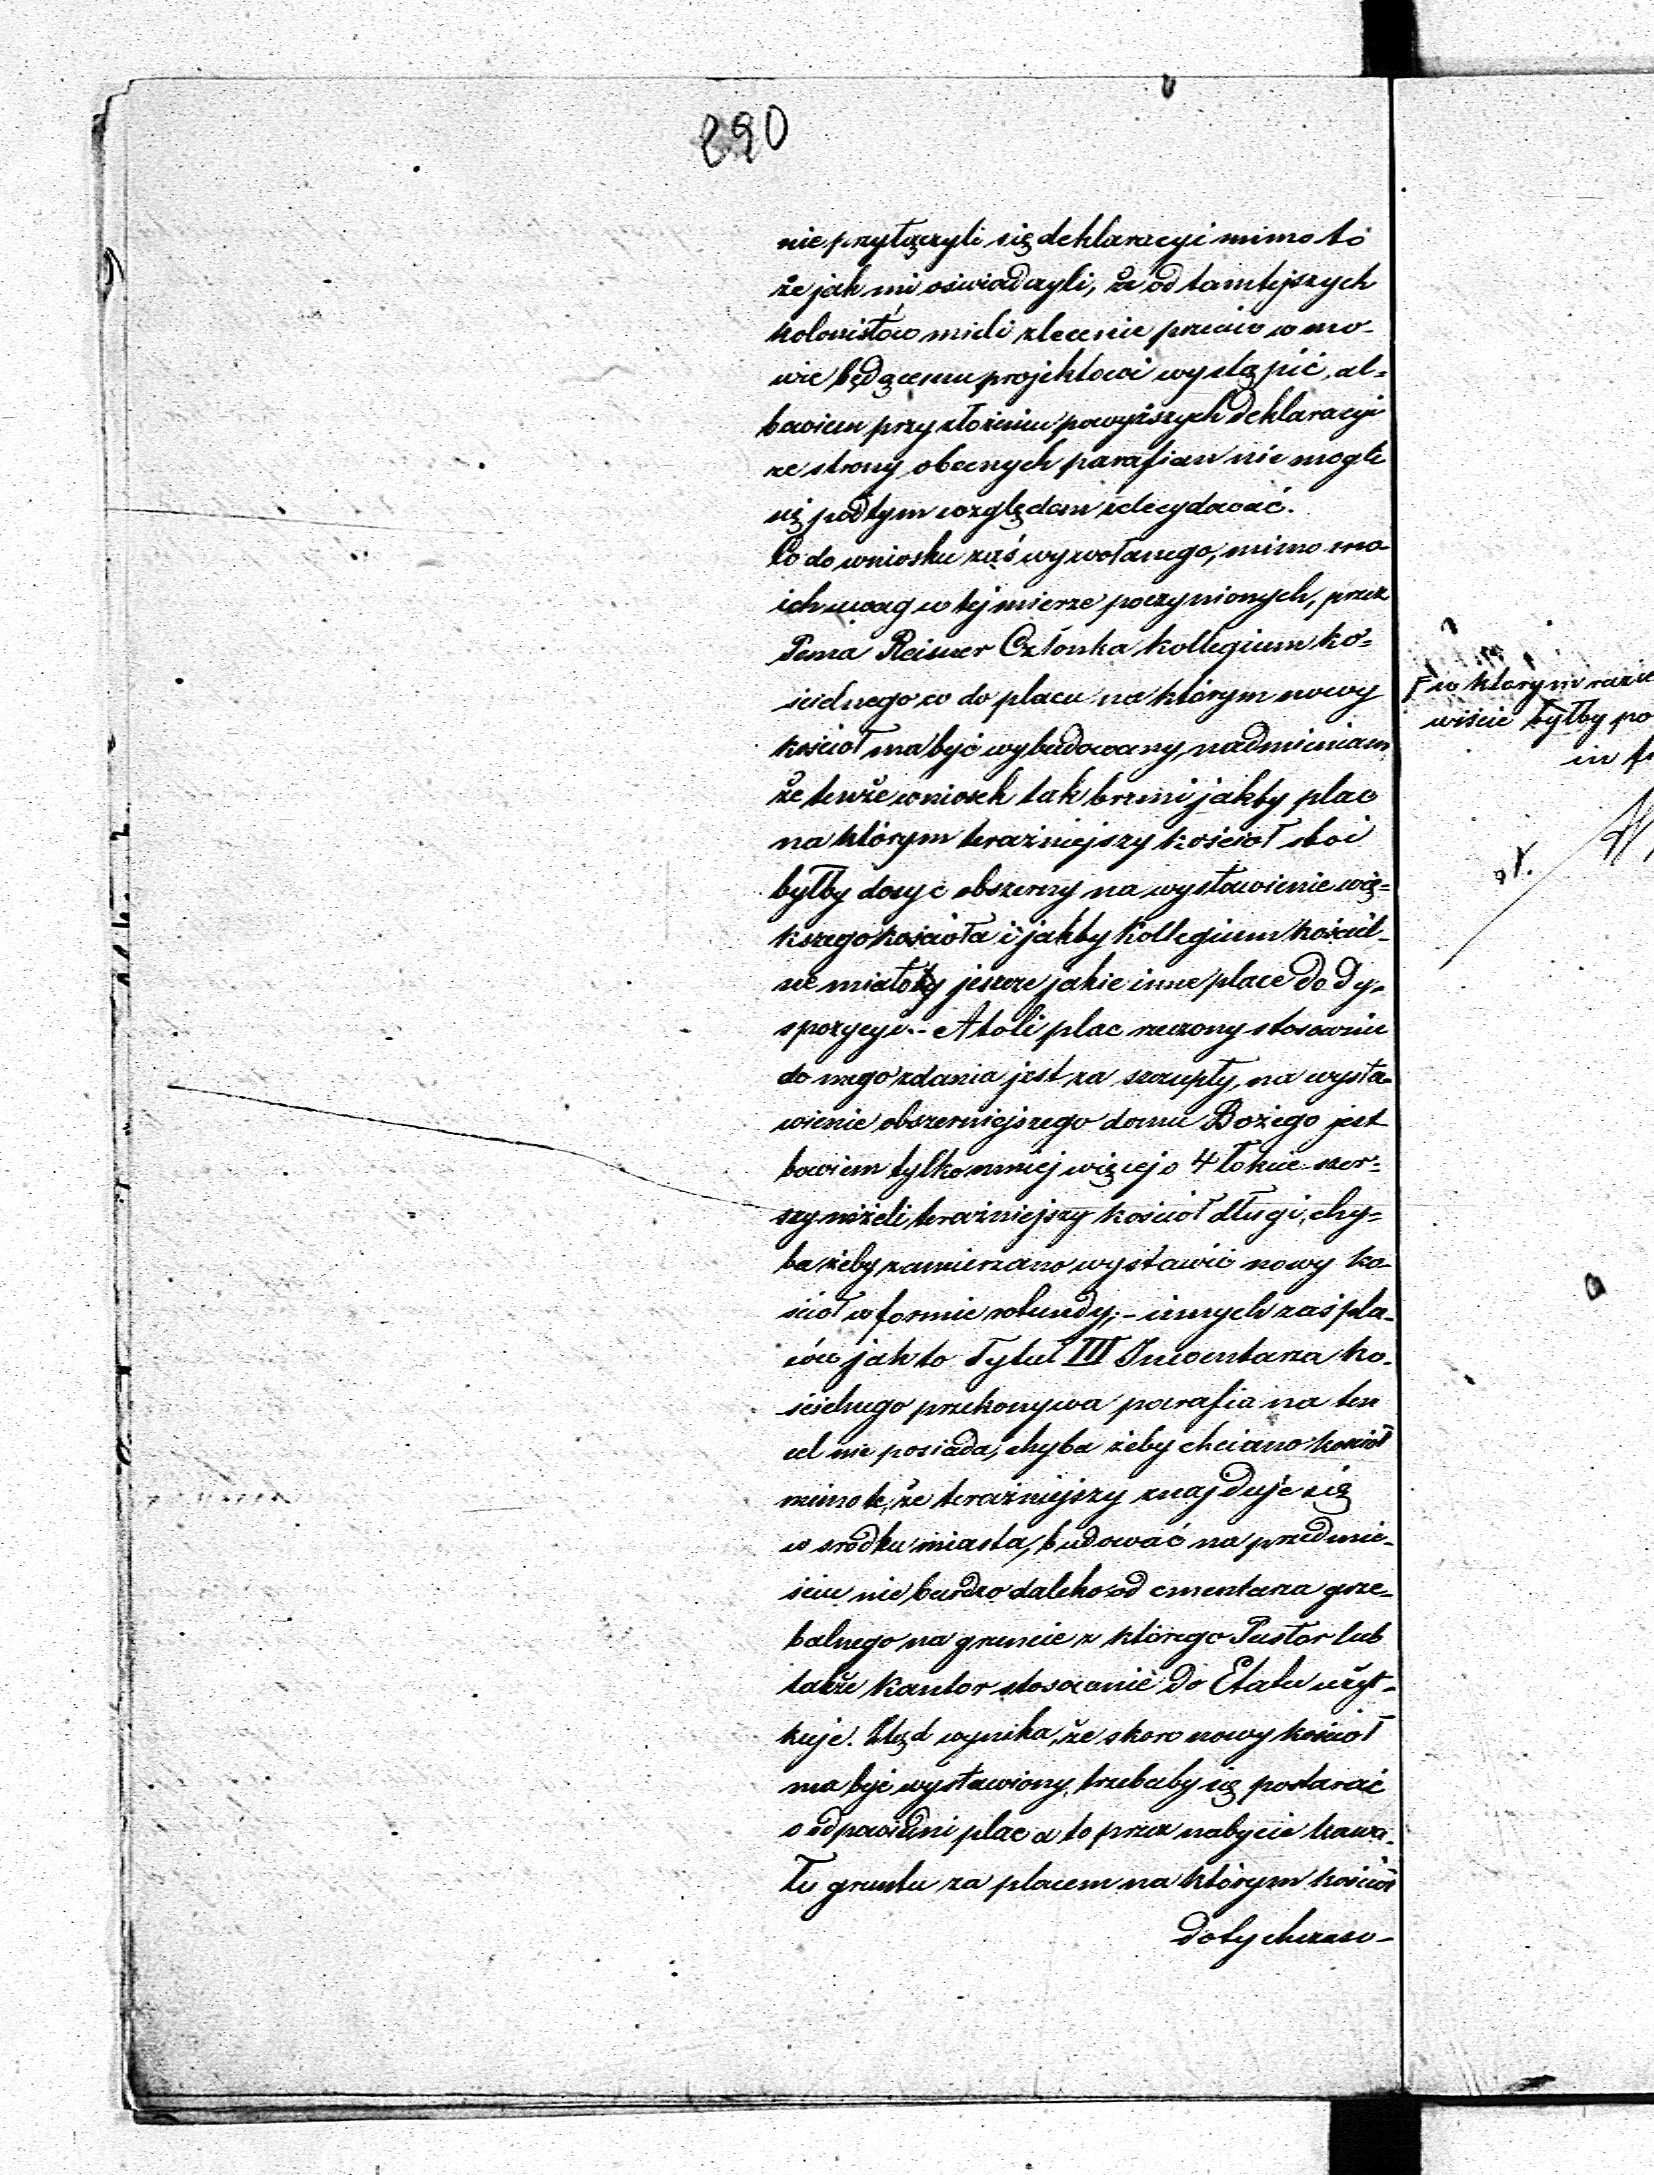 290
nie przyłączyli się deklaracyi mimo to
że jak mi oświadczyli, że od tamtejszych
kolonistów mieli zlecenie przeciw w mo-
wie będącemu projektowi wystąpić, al-
bowiem przy złożeniu powyższych deklaracyi
ze strony obecnych parafian nie mogli
się pod tym względem zdecydować.
Co do wniosku zaś wywołanego, mimo mo-
ich uwag w tej mierze poczynionych, przez
Pana Reimer Członka Kollegium ko=
ścielnego co do placu na którym nowy
kościoł ma być wybudowany, nadmieniam
że tenże wniosek tak brzmi jakby plac
na którym teraźniejszy kościoł stoi
byłby dosyć obszerny na wystawienie wię=
kszego kościoła i jakby Kollegium kościel-
ne miało jeszcze jakie inne place do dy-
spozycyi. - Atoli plac rzeczony stosownie
do mego zdania jest za szczupły, na wysta-
wienie obszerniejszego domu Bożego jest
bowiem tylko mniej więcej o 4 łokcie szer=
szy niżeli teraźniejszy kościoł długi, chy=
ba żeby zamierzano wystawić nowy ko-
ścioł w formie rotundy; - innych zaś pla-
ców jak to Tytuł III Inwentarza ko-
ścielnego przekonywa parafia na ten
cel nie posiada, chyba żeby chciano kościoł
mimo to, że teraźniejszy znajduje się
w srodku miasta, budować na przedmie-
ściu nie bardzo daleko od cmentarza grze-
balnego na gruncie z którego Pastor lub
także Kantor stosownie do Etatu użyt-
kuje. Ztąd wynika, że skoro nowy kościoł
ma być wystawiony, trzebaby się postarać
o odpowiedni plac a to przez nabycie kawa-
łu gruntu za placem na którym kościoł
dotychczaso-
w którym razie
wiście byłby po
in